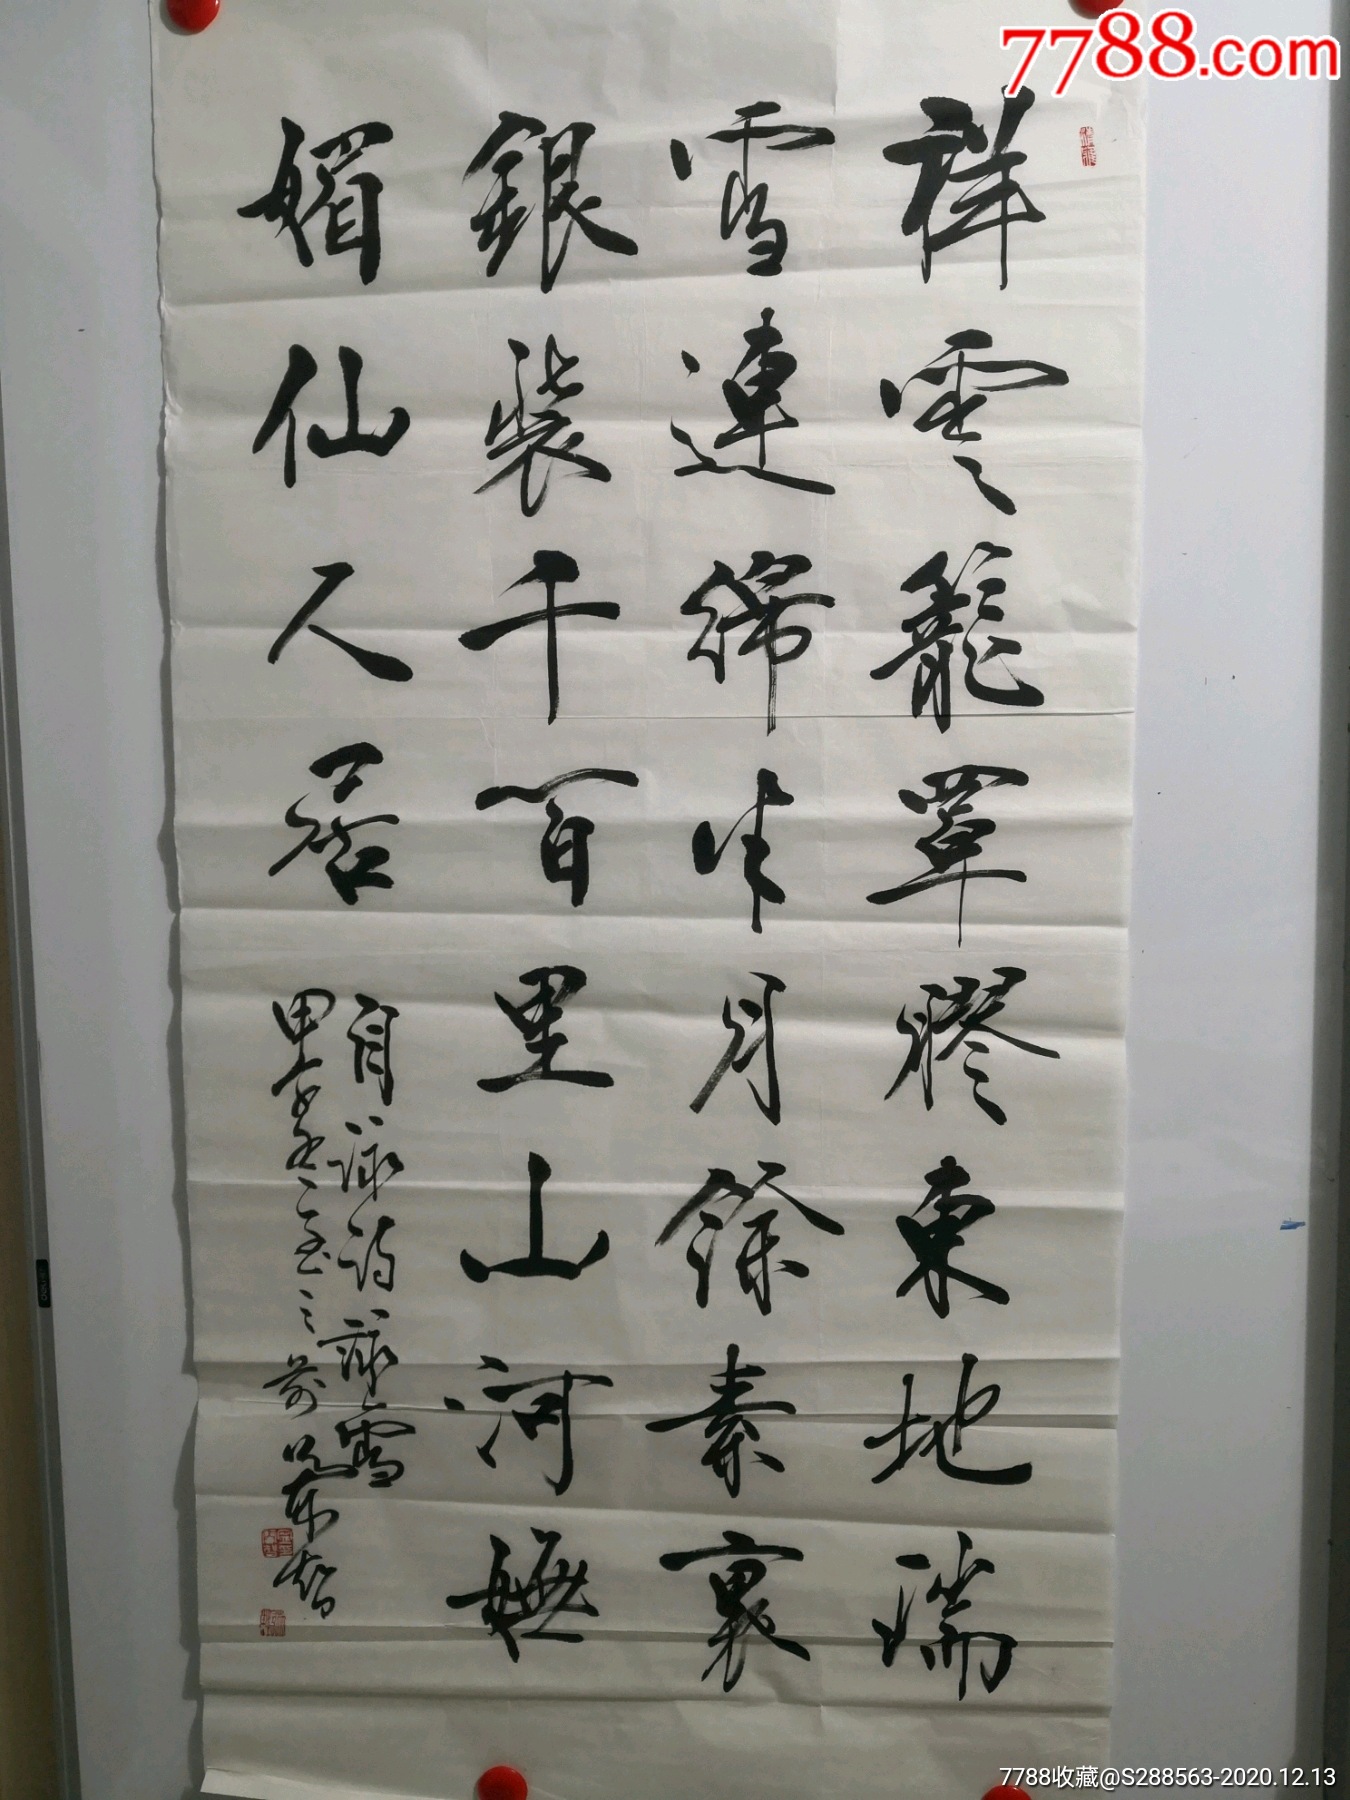 7788.com
祥雲籠罩膠東地瑞
雪連綿半月餘素裹
銀裝千百里山河嫵
媚仙人居
自詠詩詠雪
甲午冬至之前
7788收藏@S288563-2020.12.13